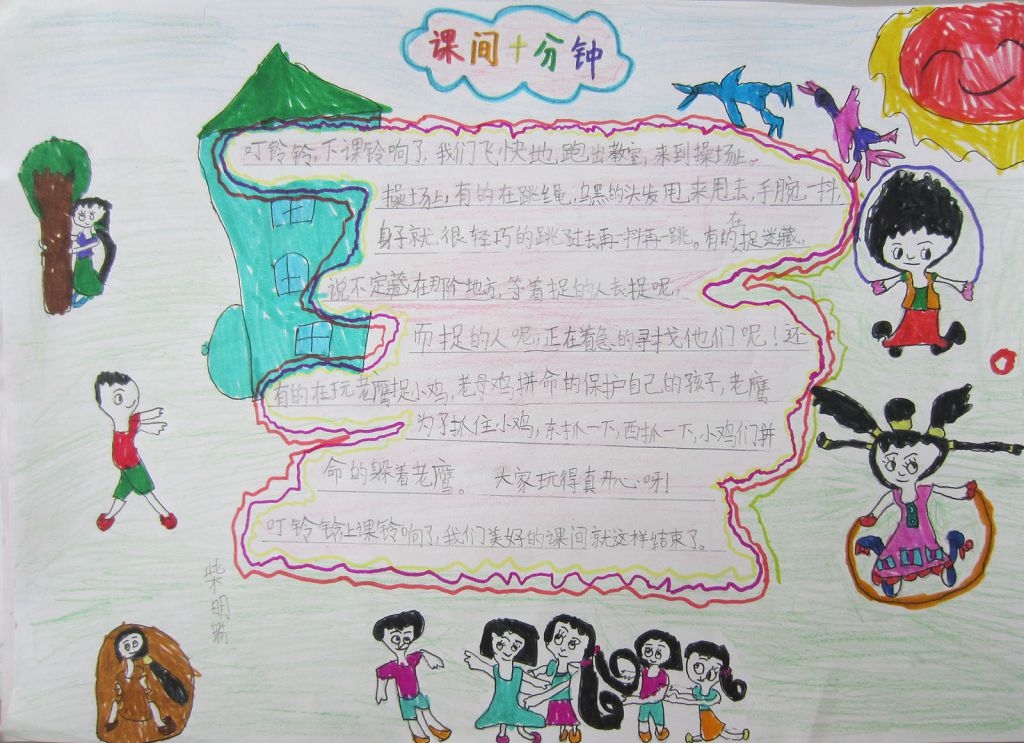 课间十分钟
叮铃铃,下课铃响了,我们飞快地,跑出教室,来到操场上。
操场上,有的在跳绳,乌黑的头发甩来甩去,手腕一抖,
身子就很轻巧的跳过去再一抖再一跳。有的在捉迷藏,
说不定藏在那个地方,等着捉的人去捉呢,
而捉的人呢,正在着急的寻找他们呢!还
有的在玩老鹰捉小鸡,老母鸡拼命的保护自己的孩子,老鹰
为了抓住小鸡,东抓一下,西抓一下,小鸡们拼
命的躲着老鹰。 大家玩得真开心呀!
叮铃铃上课铃响了,我们美好的课间就这样结束了。
柴明